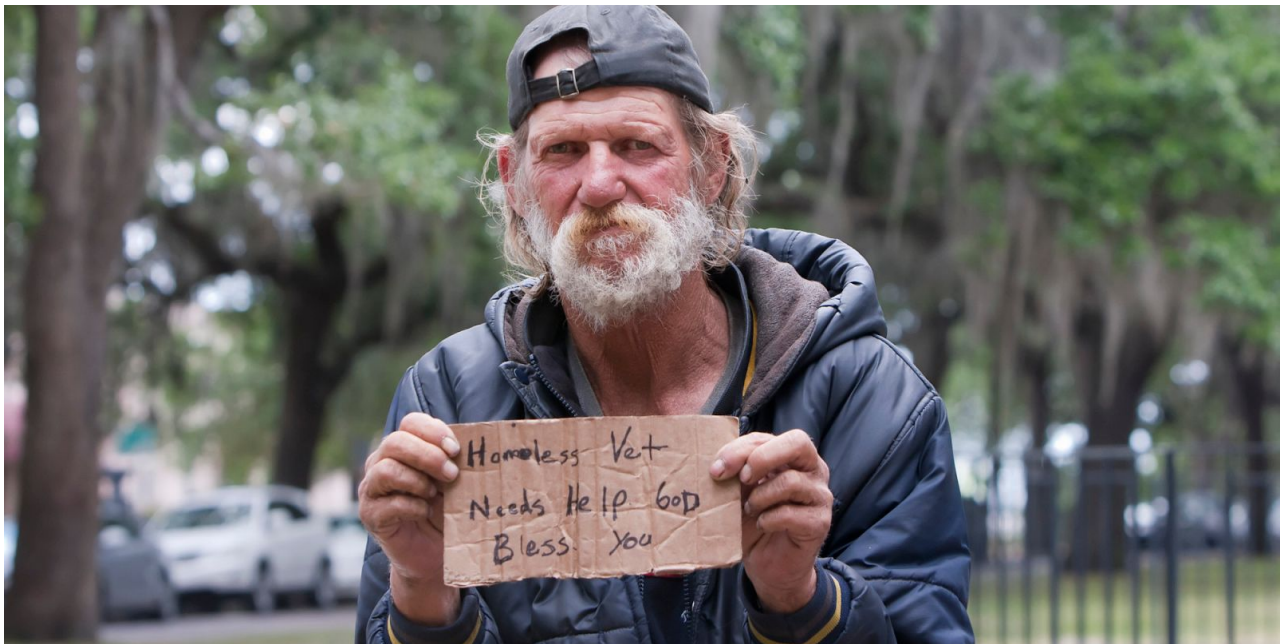 Homeless Vet
Needs Help GOD
Bless You